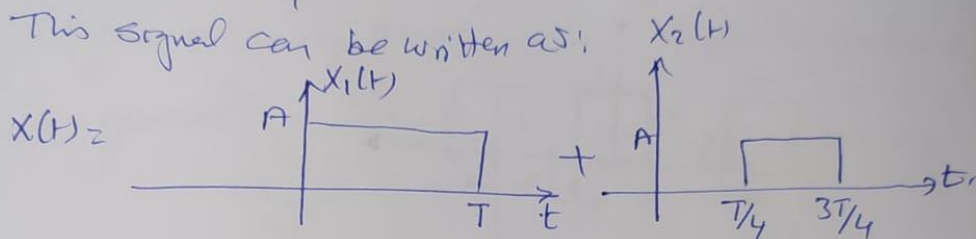 This signal can be written as: X2(t)
X1(t)
X(t)=
A
+
A
T
t
T/4
3T/4
t